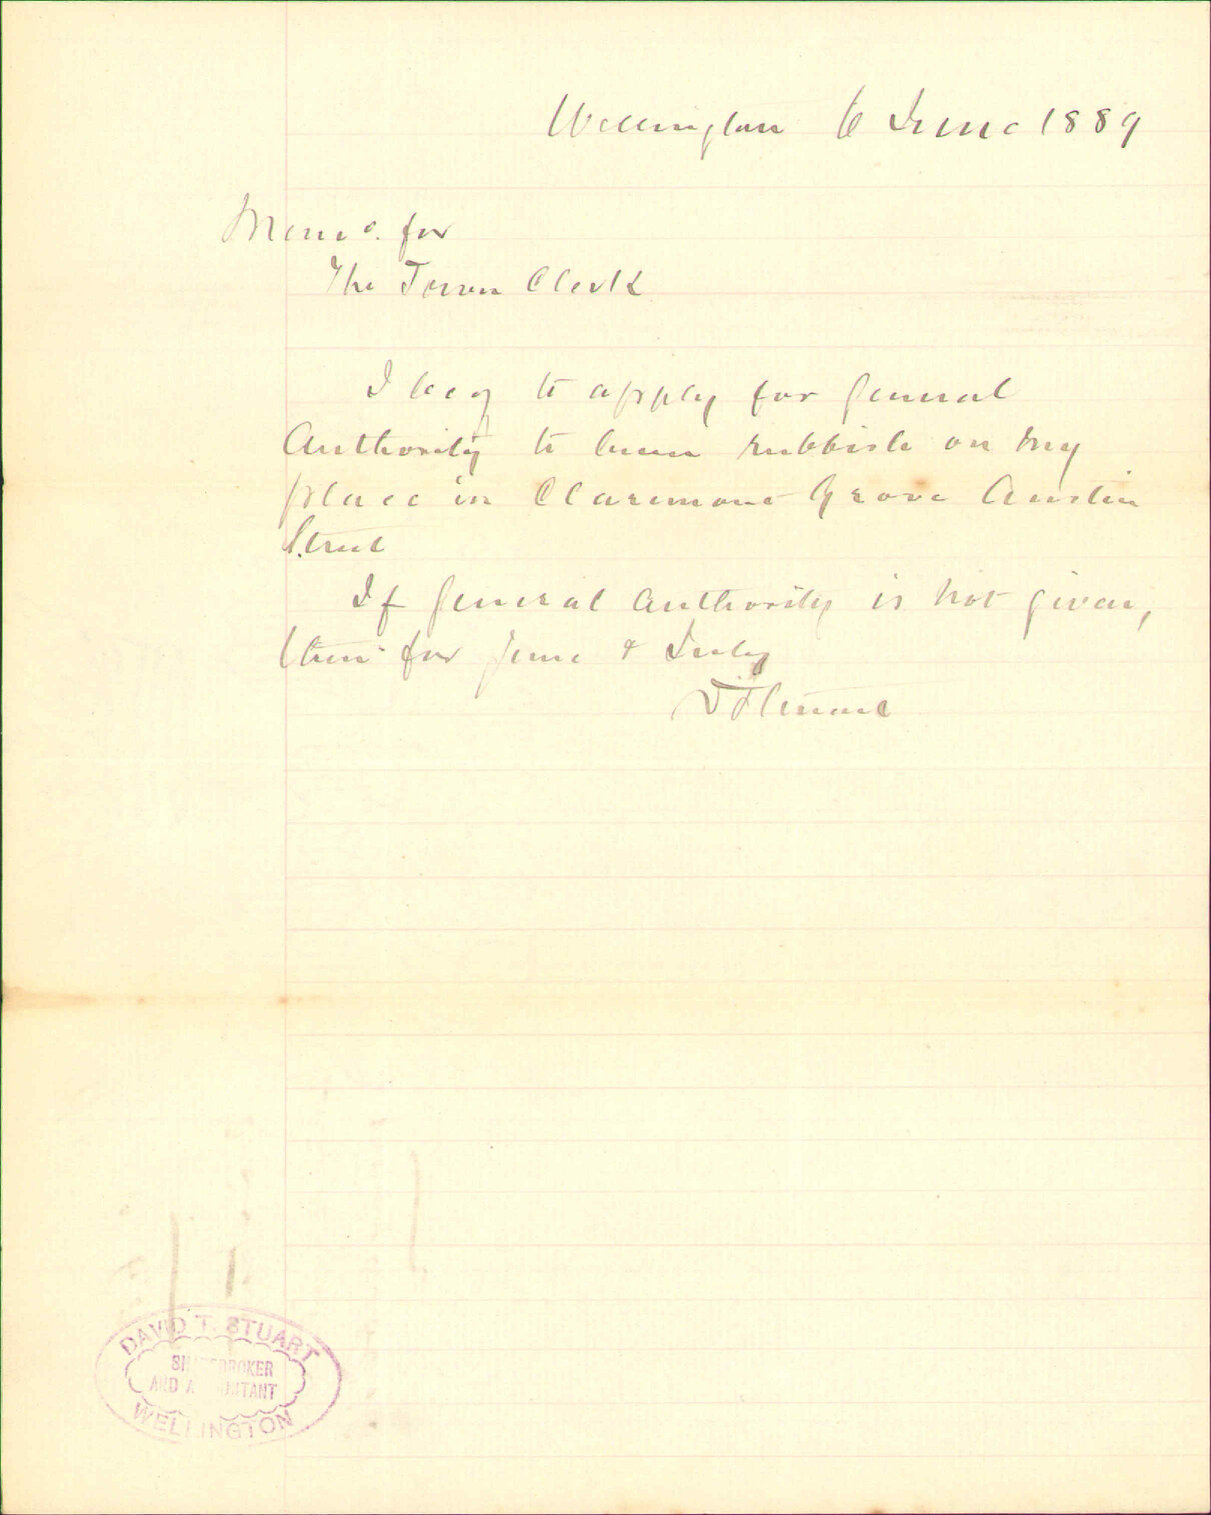 Wellington 6 June 1889
Memo. for
The Town Clerk
I beg to apply for General
Authority to burn rubbish on my
place in Claremont Grove Austin
Street
If General Authority is not given,
then for June & July
DAVID T. STUART
SHAREBROKER
AND ACCOUNTANT
WELLINGTON